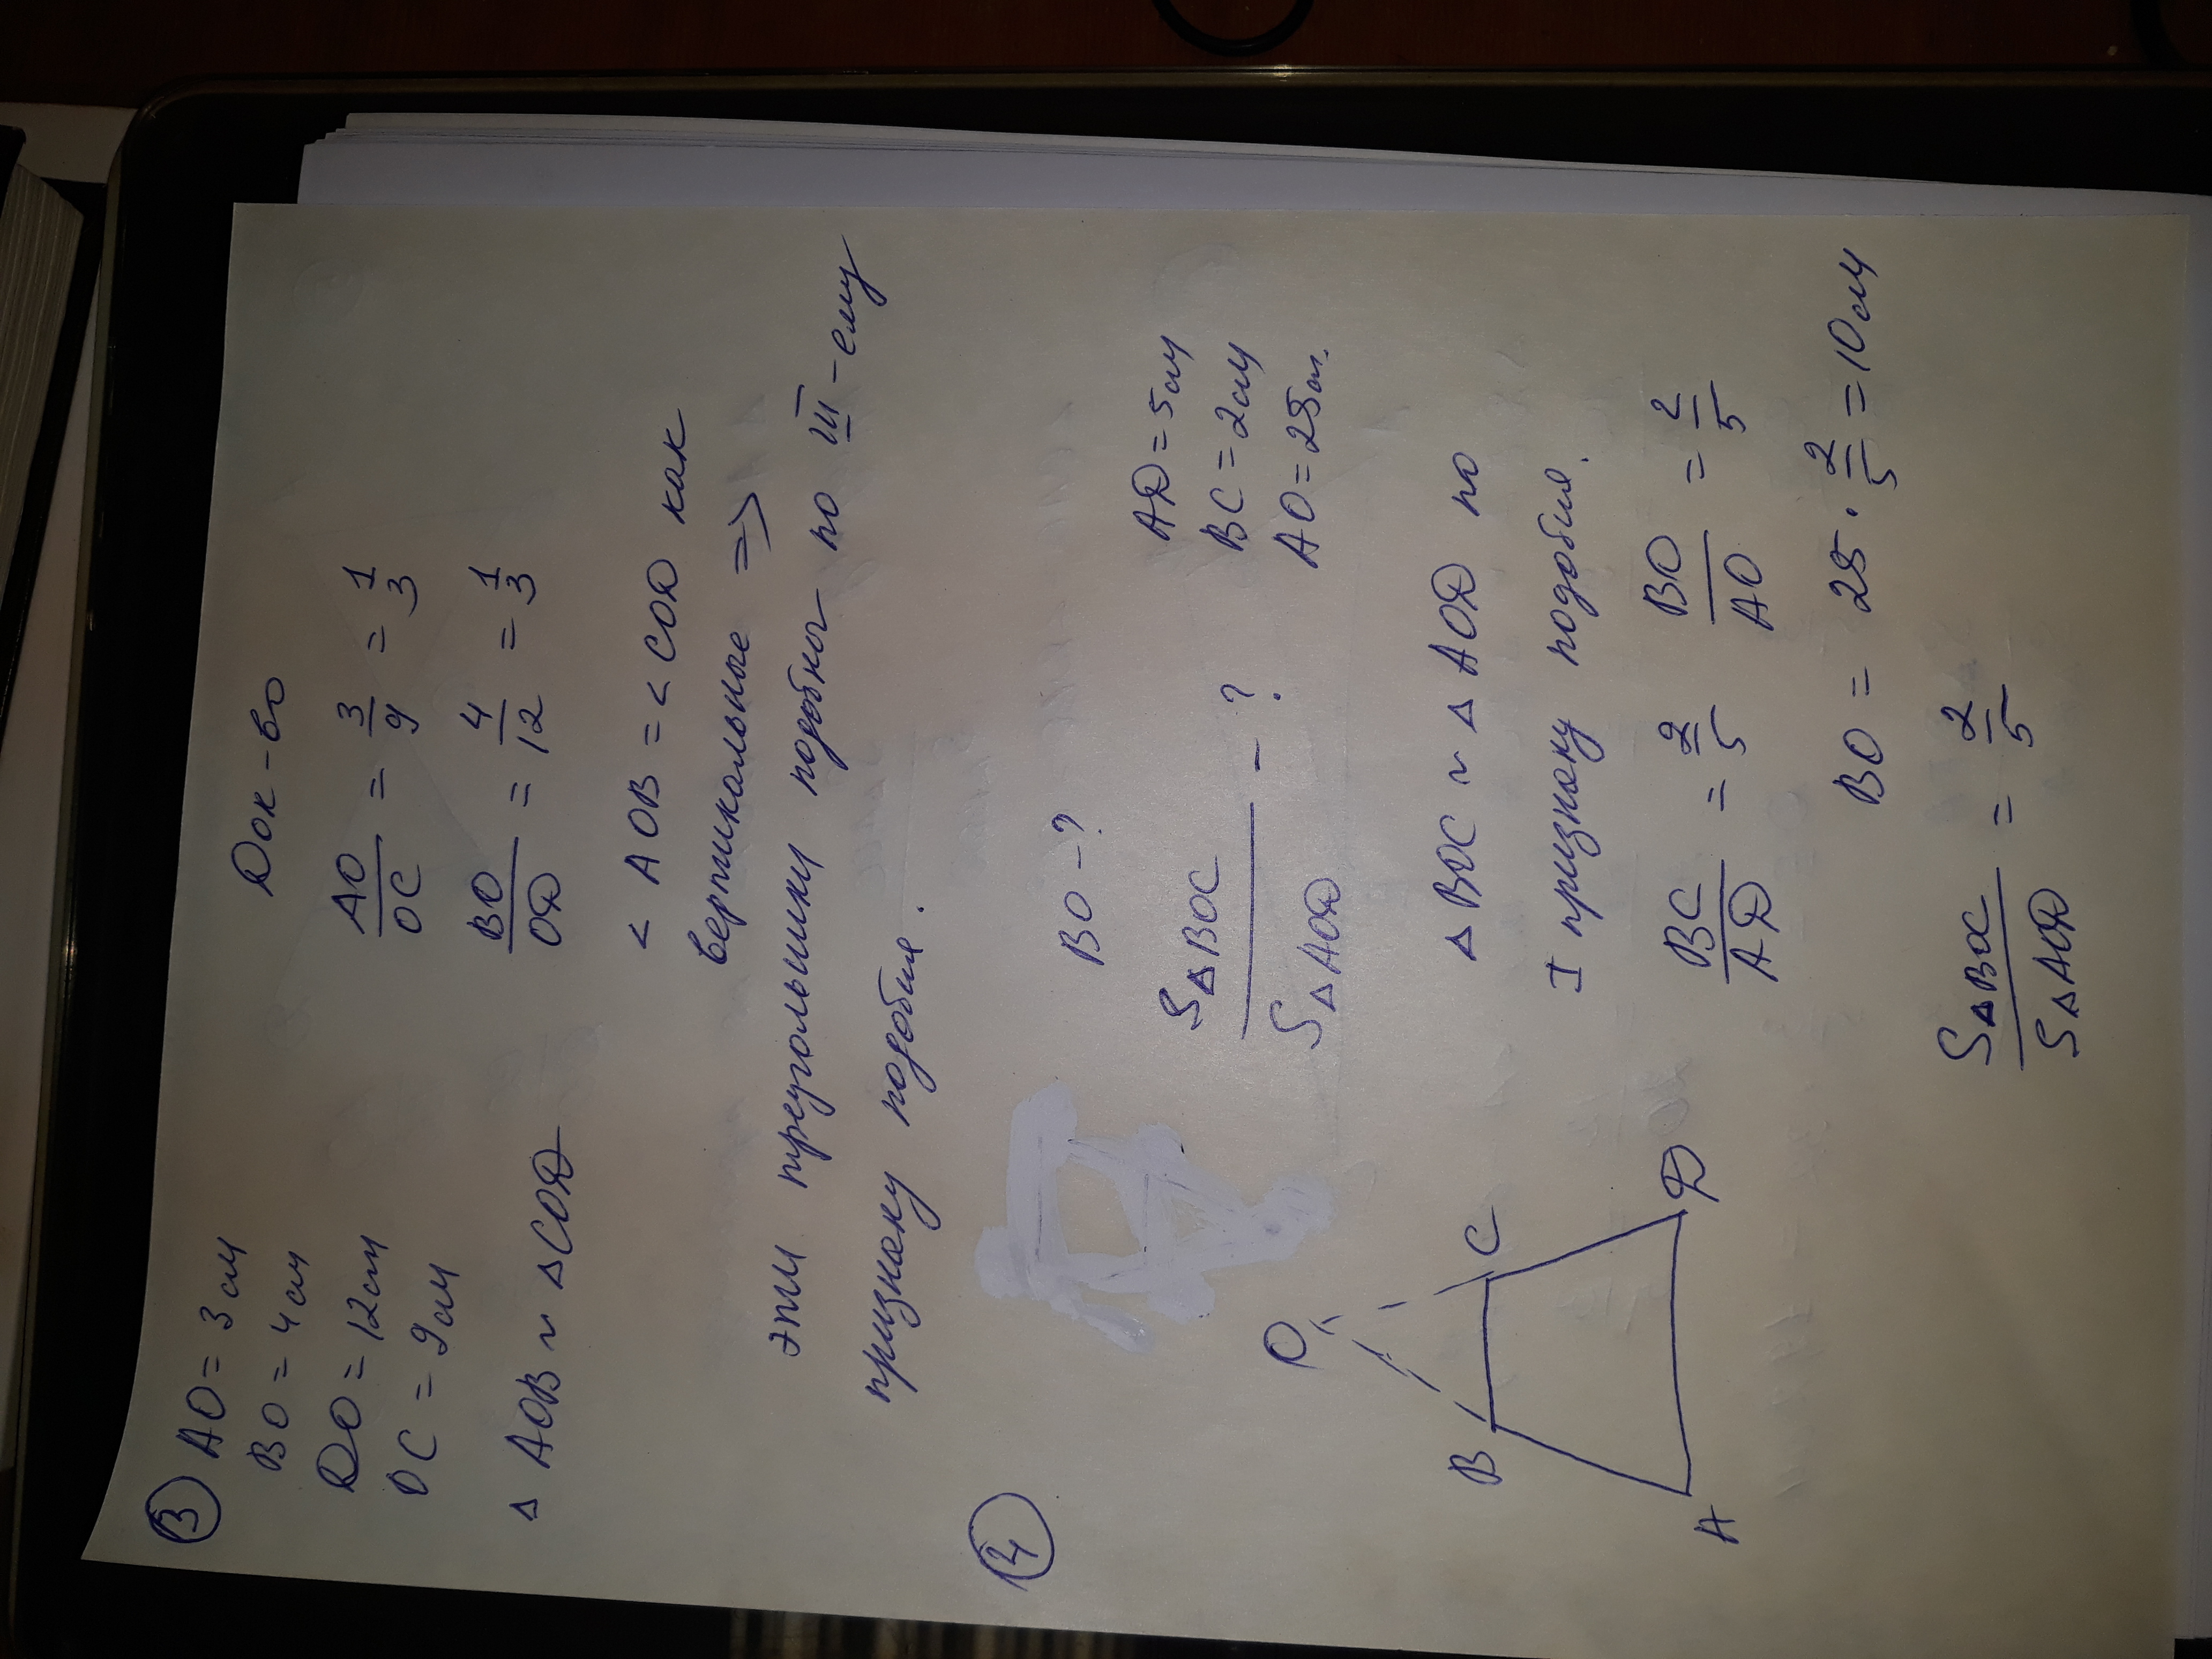 ③ AO = 3 см
BO = 4 см
DO = 12 см
OC = 9 см
△ AOB ~ △COD
Док-во
AO/OC = 3/9 = 1/3
BO/OD = 4/12 = 1/3
< AOB = < COD как
вертикальные =>
эти треугольники подобны по III-ему
признаку подобия.
④
BO - ?
S△BOC/S△AOD - ?
AD = 5 см
BC = 2 см
AO = 25 см.
O
B C
A D
△ BOC ~ △ AOD по
I признаку подобия.
BC/AD = 2/5 BO/AO = 2/5
BO = 25 · 2/5 = 10 см
S△BOC/S△AOD = 2/5